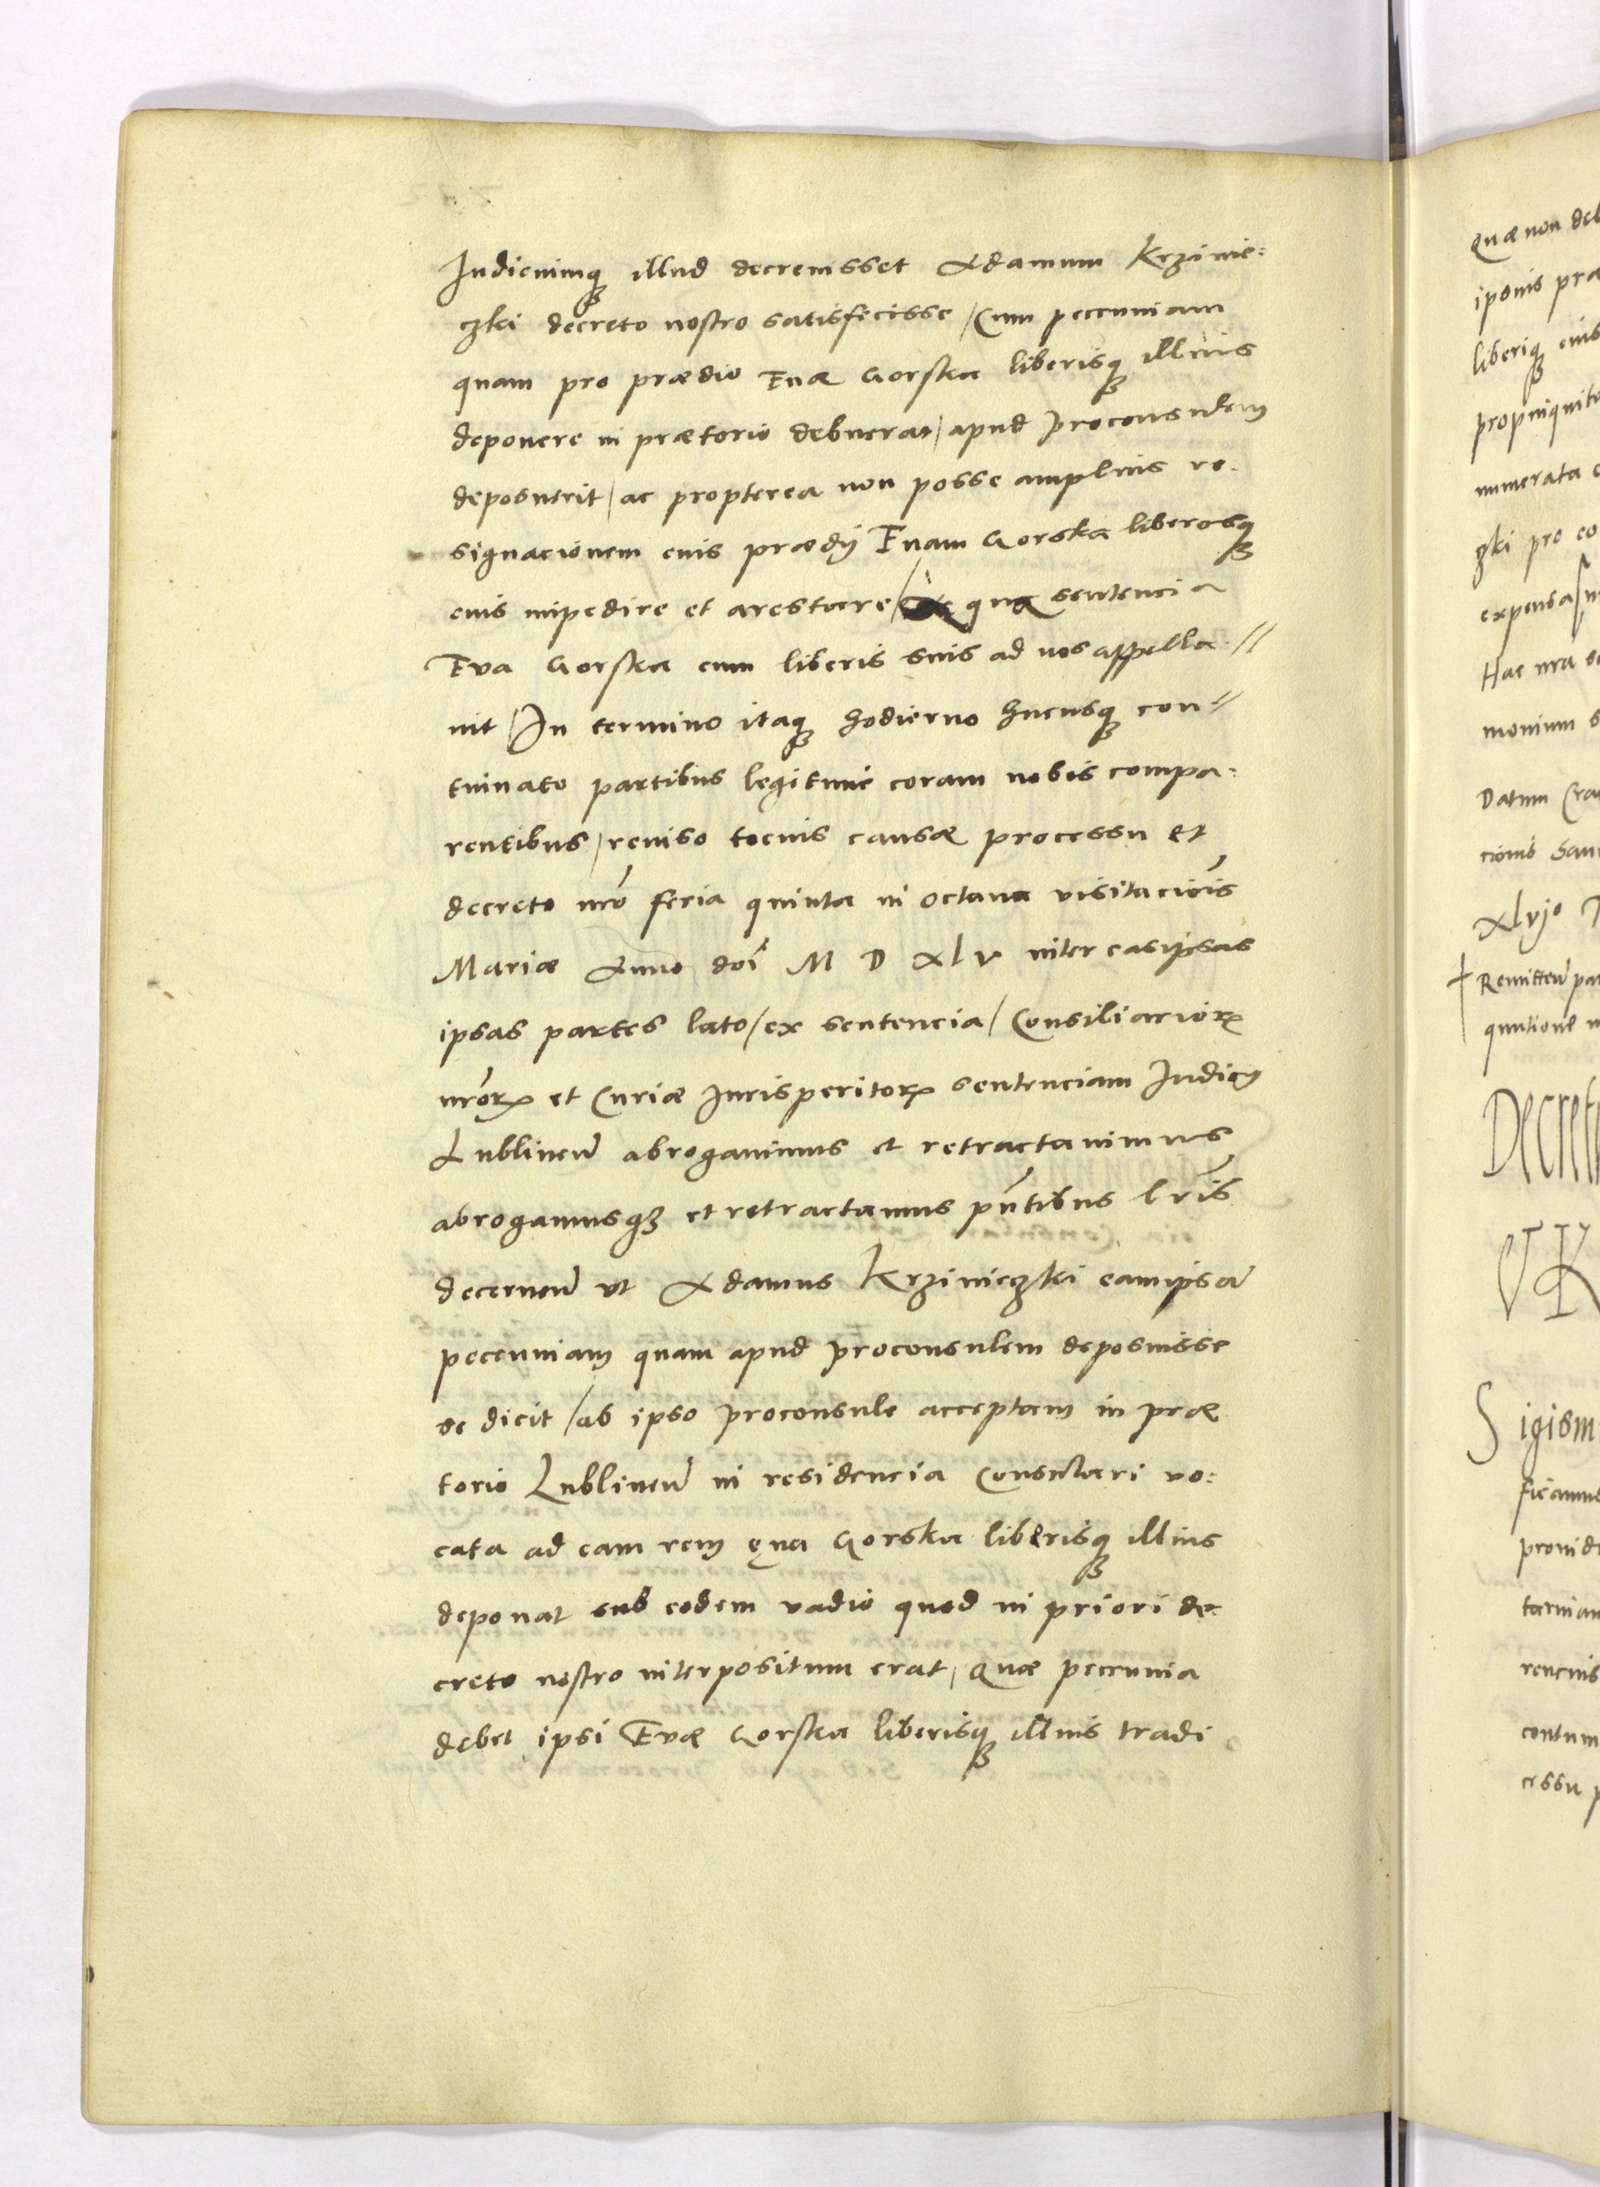 Iudiciumq illud decrevisset Adamum Krzinie:
czki decreto nostro satisfecisse / Cum pecuniam
quam pro prædio Euæ Gorska liberisq illius
deponere in prætorio debuerat / apud proconsulem
deposuerit / ac propterea non posse amplius re:
signacionem eius prædij Euam Gorska liberosq
eius impedire et arestare / qua sentencia
Eva Gorska cum liberis suis ad nos appella://
uit / In termino itaq hodierno hucusq con//
tinuato partibus legitime coram nobis compa:
rentibus / reuiso tocius causæ processu et
decreto nro feria quinta in octaua visitacois
Mariæ Anno doi M D XLV inter easipsas
ipsas partes lato / ex sentencia / Consiliarior
nror et Curiæ Iurisperitor sentenciam Iudicij
Lublinen abrogauimus et retractauimus
abrogamusq et retractamus pntibus lris
decernen vt Adamus Krzinieczki eamipsa
pecuniam quam apud proconsulem deposuisse
se dicit / ab ipso proconsule acceptam in præ
torio Lublinen in residencia Consulari vo:
cata ad eam rem Eua Gorska liberisq illius
deponat sub eodem vadio quod in priori de:
creto nostro interpositum erat / Quæ pecunia
debet ipsi Evæ Gorska liberisq illius tradi
Quæ non deb
ipsius præ
liberiq eius
propinquita
numerata
zki pro eo
expensa
Hac nra se
monium s
Datum Cra
cionis San
xlvjo
Remitten par
Decret
Sigism
ficamus
provid
contum
essu p